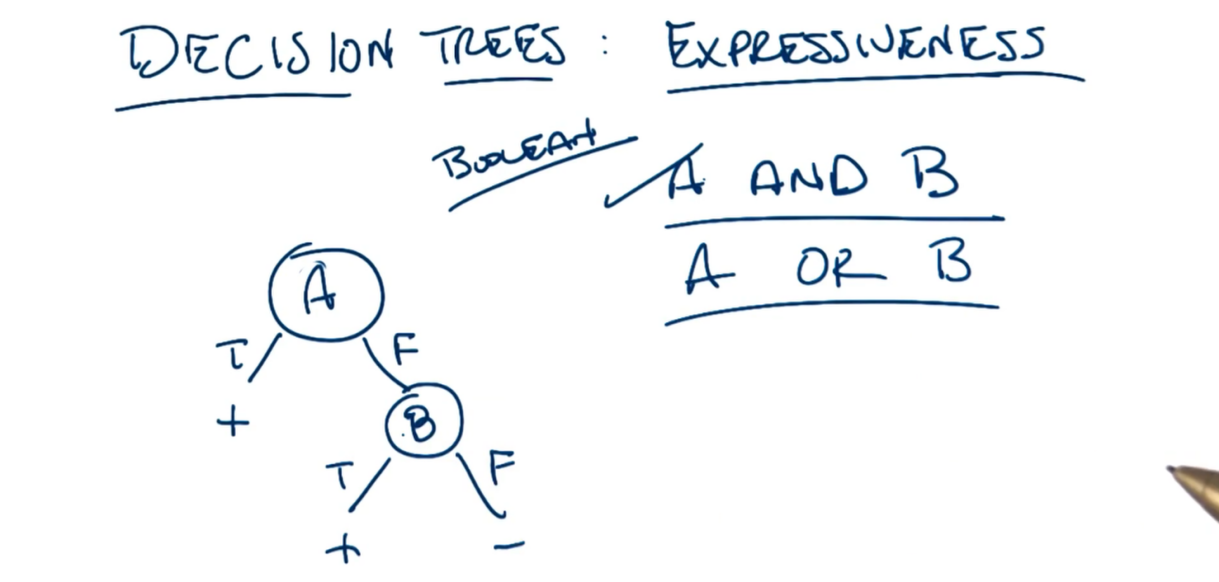 DECISION TREES : EXPRESSIVENESS
BOOLEAN
A AND B
A OR B
A
T F
+
B
T F
+ −